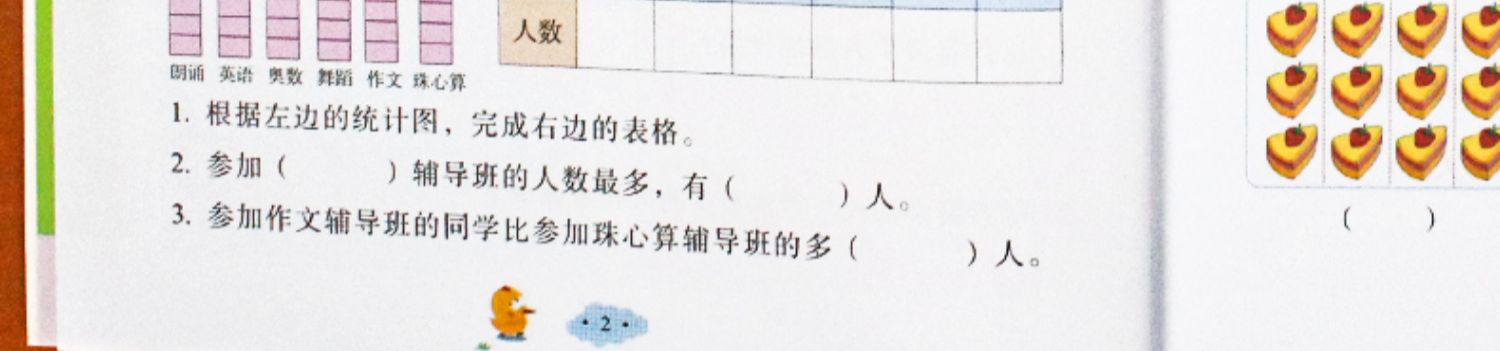 人数
朗诵 英语 奥数 舞蹈 作文 珠心算
1. 根据左边的统计图，完成右边的表格。
2. 参加（ ）辅导班的人数最多，有（ ）人。
3. 参加作文辅导班的同学比参加珠心算辅导班的多（ ）人。
·2·
（ ）